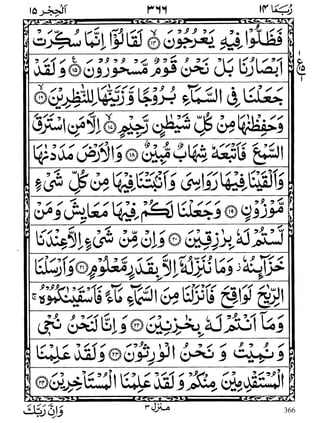 رُبَمَا ١٤ ٣٦٦ اَلْحِجْر ١٥
فَظَلُّوْا فِيْهِ يَعْرُجُوْنَ ۙ﴿١٤﴾ لَقَالُوْۤا اِنَّمَا سُكِّرَتْ
اَبْصَارُنَا بَلْ نَحْنُ قَوْمٌ مَّسْحُوْرُوْنَ ﴿١٥﴾ وَلَقَدْ
جَعَلْنَا فِى السَّمَآءِ بُرُوْجًا وَّزَيَّنّٰهَا لِلنّٰظِرِيْنَ ﴿١٦﴾
وَحَفِظْنٰهَا مِنْ كُلِّ شَيْطٰنٍ رَّجِيْمٍ ﴿١٧﴾ اِلَّا مَنِ اسْتَرَقَ
السَّمْعَ فَاَتْبَعَهٗ شِهَابٌ مُّبِيْنٌ ﴿١٨﴾ وَالْاَرْضَ مَدَدْنٰهَا
وَاَلْقَيْنَا فِيْهَا رَوَاسِىَ وَاَنْۢبَتْنَا فِيْهَا مِنْ كُلِّ شَىْءٍ
مَّوْزُوْنٍ ﴿١٩﴾ وَجَعَلْنَا لَكُمْ فِيْهَا مَعَايِشَ وَمَنْ
لَّسْتُمْ لَهٗ بِرٰزِقِيْنَ ﴿٢٠﴾ وَاِنْ مِّنْ شَىْءٍ اِلَّا عِنْدَنَا
خَزَآئِنُهٗ وَمَا نُنَزِّلُهٗۤ اِلَّا بِقَدَرٍ مَّعْلُوْمٍ ﴿٢١﴾ وَاَرْسَلْنَا
الرِّيٰحَ لَوَاقِحَ فَاَنْزَلْنَا مِنَ السَّمَآءِ مَآءً فَاَسْقَيْنٰكُمُوْهُ ۚ
وَمَاۤ اَنْتُمْ لَهٗ بِخٰزِنِيْنَ ﴿٢٢﴾ وَاِنَّا لَنَحْنُ نُحْىٖ
وَنُمِيْتُ وَنَحْنُ الْوٰرِثُوْنَ ﴿٢٣﴾ وَلَقَدْ عَلِمْنَا
الْمُسْتَقْدِمِيْنَ مِنْكُمْ وَلَقَدْ عَلِمْنَا الْمُسْتَاْخِرِيْنَ ﴿٢٤﴾
366 منزل ٣ وَاِنَّ رَبَّكَ